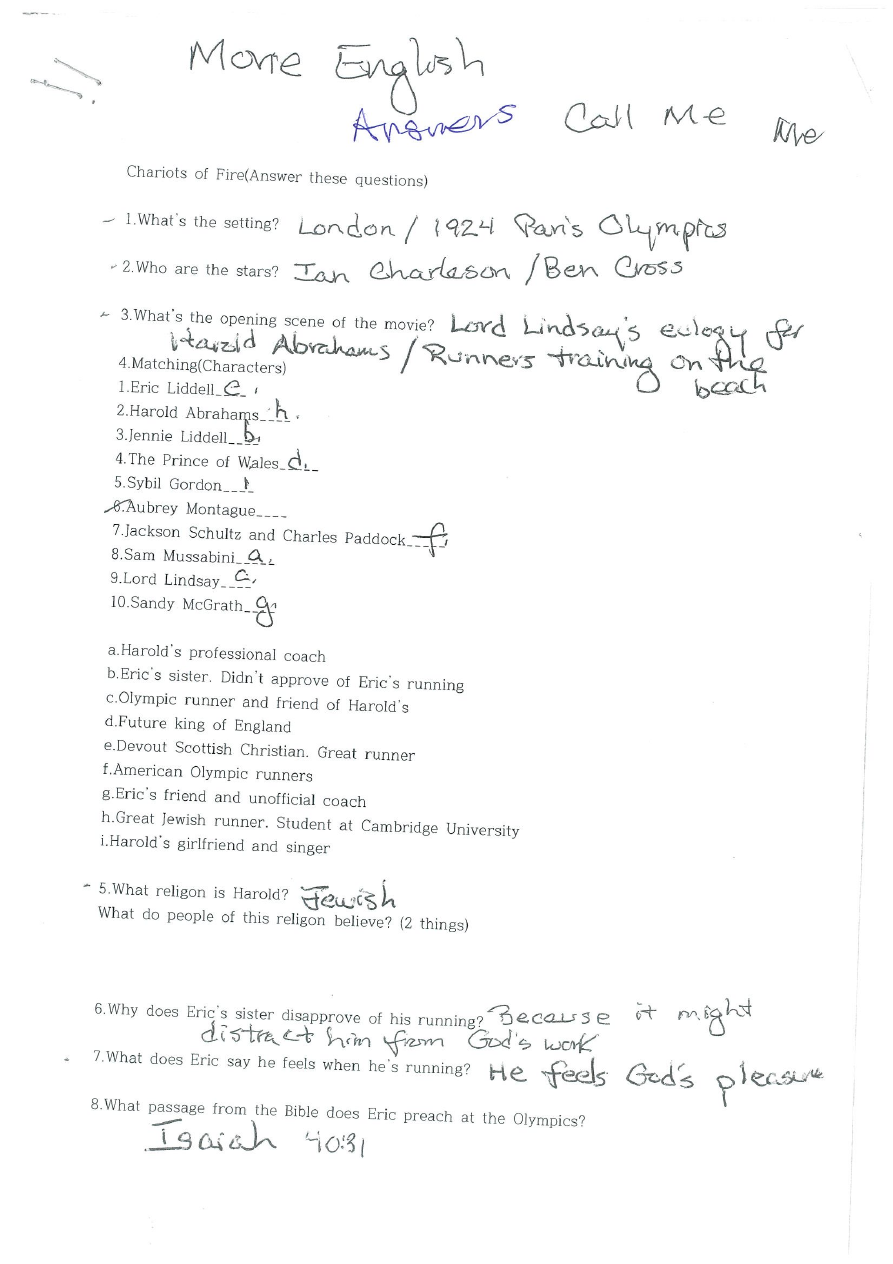 Movie English
Answers Call Me Me
Chariots of Fire(Answer these questions)
1.What's the setting? London / 1924 Paris Olympics
2.Who are the stars? Ian Charleson / Ben Cross
3.What's the opening scene of the movie? Lord Lindsay's eulogy for
Harold Abrahams / Runners training on the
beach
4.Matching(Characters)
1.Eric Liddell e.
2.Harold Abrahams h.
3.Jennie Liddell b.
4.The Prince of Wales d.
5.Sybil Gordon i
6.Aubrey Montague____
7.Jackson Schultz and Charles Paddock f
8.Sam Mussabini a.
9.Lord Lindsay c.
10.Sandy McGrath g.
a.Harold's professional coach
b.Eric's sister. Didn't approve of Eric's running
c.Olympic runner and friend of Harold's
d.Future king of England
e.Devout Scottish Christian. Great runner
f.American Olympic runners
g.Eric's friend and unofficial coach
h.Great Jewish runner. Student at Cambridge University
i.Harold's girlfriend and singer
5.What religon is Harold? Jewish
What do people of this religon believe? (2 things)
6.Why does Eric's sister disapprove of his running? Because it might
distract him from God's work
7.What does Eric say he feels when he's running? He feels God's pleasure
8.What passage from the Bible does Eric preach at the Olympics?
Isaiah 40:31